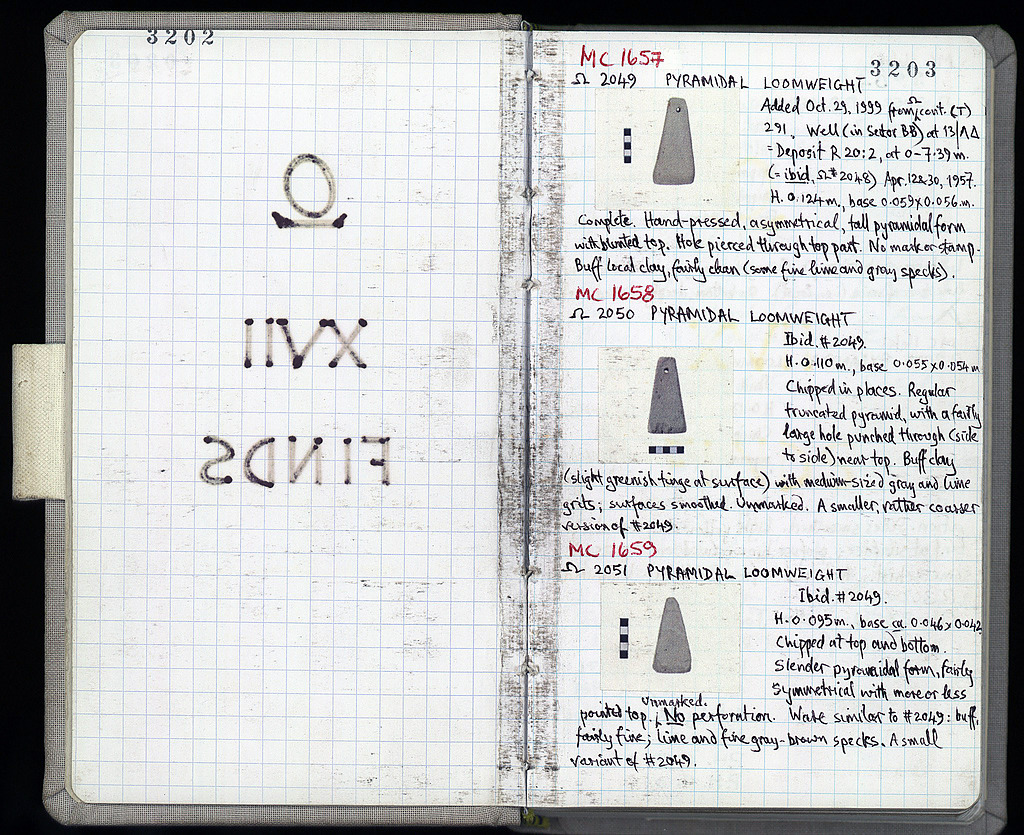 3202
Ω
XVII
FINDS
3203
MC 1657
Ω 2049 PYRAMIDAL LOOMWEIGHT
Added Oct. 29, 1999 from Ω cont. (T)
291, Well (in Sector BB) at 13/ΛΔ
= Deposit R 20:2, at 0-7.39 m.
(= ibid, Ω # 2048) Apr. 12&30, 1957.
H. 0.124 m., base 0.059 x 0.056 m.
Complete. Hand-pressed, asymmetrical, tall pyramidal form
with blunted top. Hole pierced through top part. No mark or stamp.
Buff local clay, fairly clean (some fine lime and gray specks).
MC 1658
Ω 2050 PYRAMIDAL LOOMWEIGHT
Ibid. # 2049.
H. 0.110 m., base 0.055 x 0.054 m
Chipped in places. Regular
truncated pyramid, with a fairly
large hole punched through (side
to side) near top. Buff clay
(slight greenish tinge at surface) with medium-sized gray and lime
grits; surfaces smoothed. Unmarked. A smaller, rather coarser
version of # 2049.
MC 1659
Ω 2051 PYRAMIDAL LOOMWEIGHT
Ibid. # 2049.
H. 0.095 m., base ca. 0.046 x 0.042
Chipped at top and bottom.
Slender pyramidal form, fairly
symmetrical with more or less
pointed top. Unmarked. No perforation. Ware similar to # 2049: buff,
fairly fine; lime and fine gray-brown specks. A small
variant of # 2049.